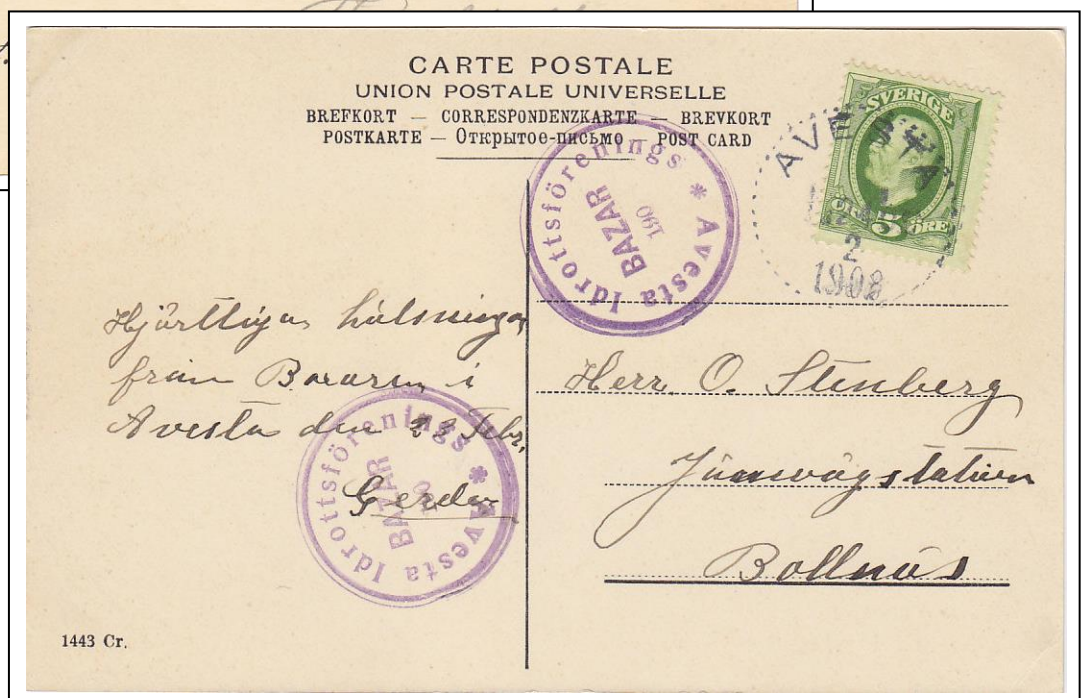 CARTE POSTALE
UNION POSTALE UNIVERSELLE
BREFKORT — CORRESPONDENZKARTE — BREVKORT
POSTKARTE — Открытое-письмо — POST CARD
SVERIGE
5
ÖRE
AVESTA
2
1908
Avesta Idrottsförenings *
BAZAR
190
Hjärtliga hälsningar
från Bazaren i
Avesta den 23 Febr.
Gerda
Avesta Idrottsförenings *
BAZAR
190
Herr O. Stenberg
Järnvägstation
Bollnäs
1443 Cr.